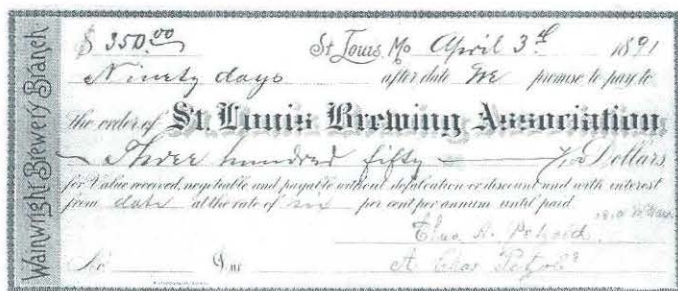 Wainwright Brewery Branch
$ 350.00 St Louis, Mo April 3rd 1891
Ninety days after date We promise to pay to
the order of St. Louis Brewing Association
Three hundred fifty Dollars
for Value received, negotiable and payable without defalcation or discount and with interest
from date at the rate of six per cent per annum until paid
Chas. A.
No. Due A Chas